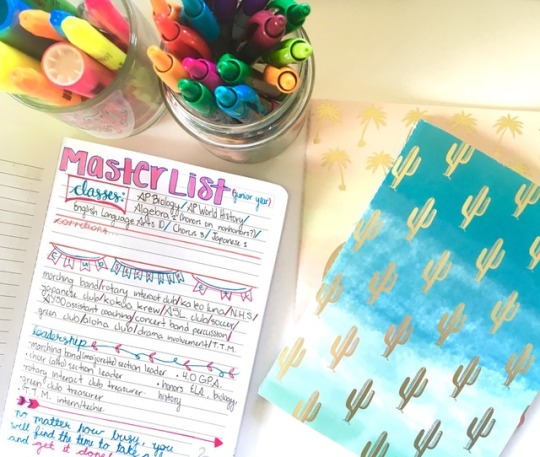 Master List (junior year)
classes: AP Biology/AP World History/
Algebra 2 (honors or nonhonors?)/
English Language Arts 10/Chorus 3/Japanese 1
corrections
marching band/rotary interact club/ka leo luna/N.H.S/
japanese club/kokua krew/ASL club/soccer/
AYSO assistant coaching/concert band percussion/
green club/aloha club/drama involvement/T.T.M.
leadership
•marching band (majorette) section leader
•4.0 G.P.A.
•choir (alto) section leader
•honors ELA, biology
rotary interact club treasurer
history
•green club treasurer
T.T.M. intern/techie
no matter how busy, you
will find the time to take
and get it done!